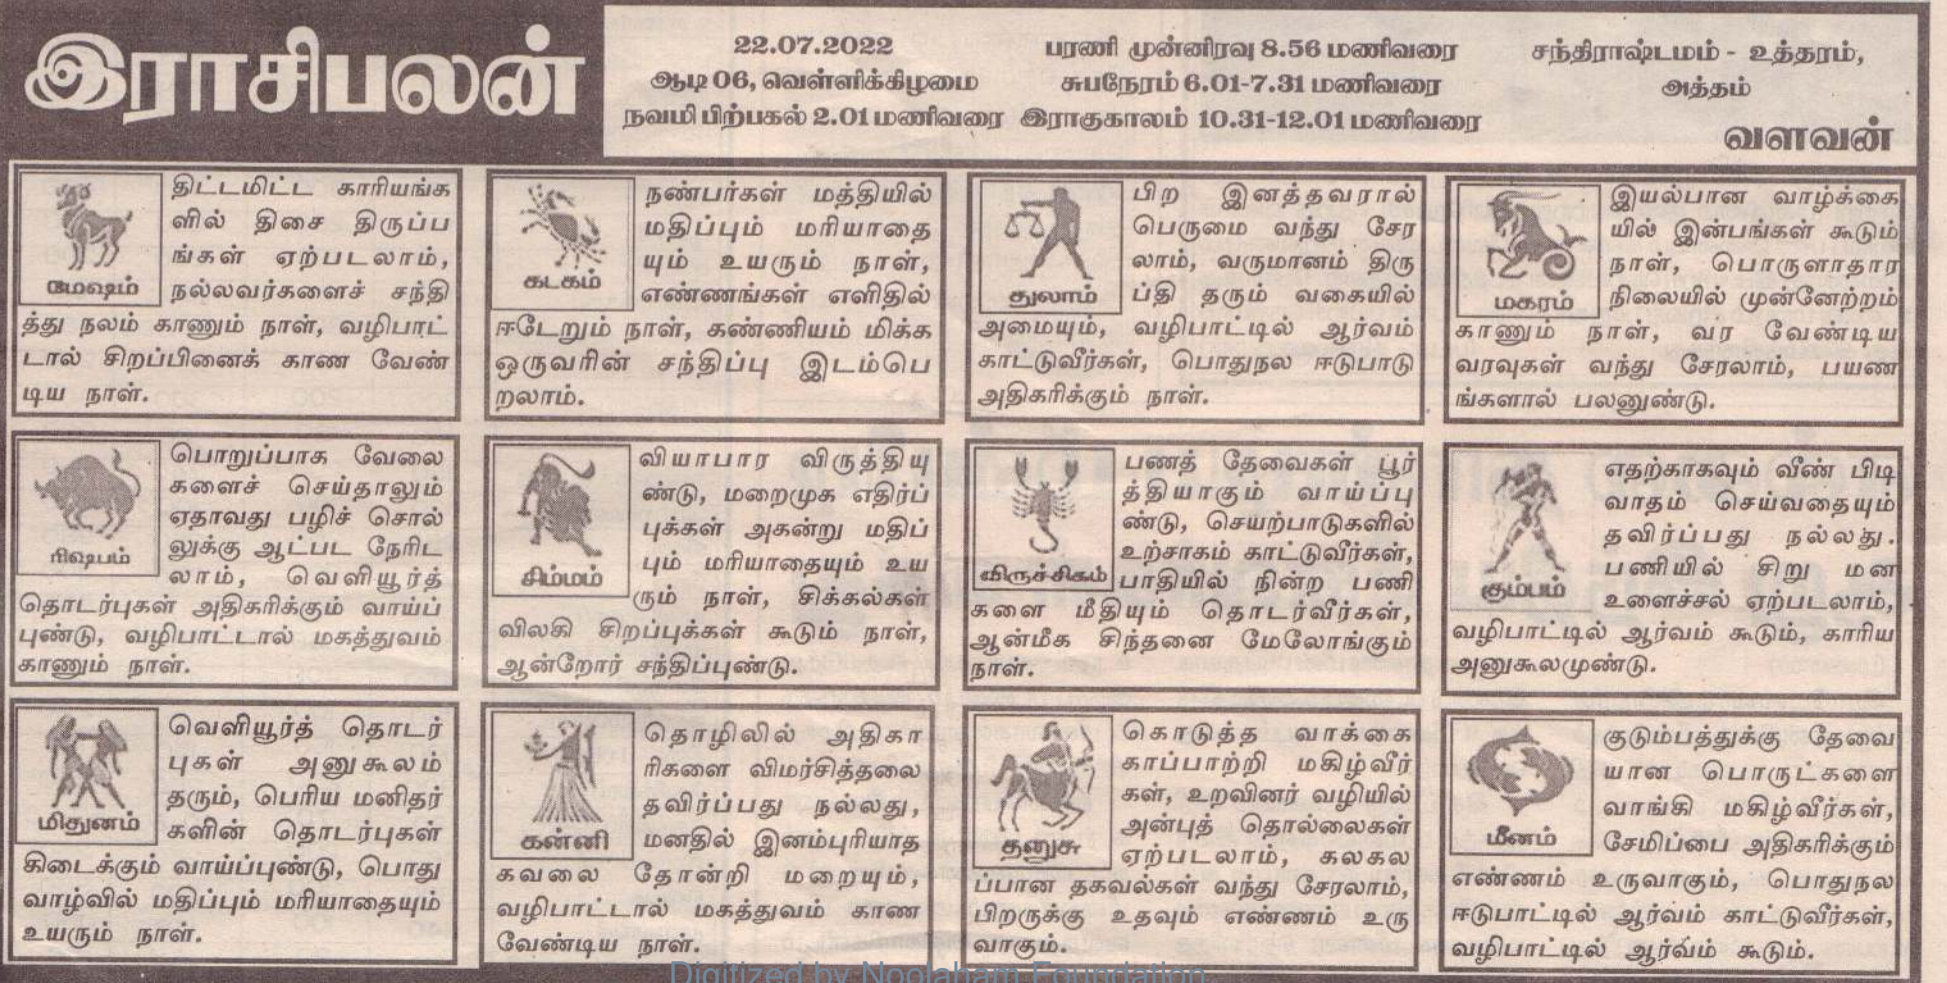 இராசிபலன்
22.07.2022
ஆடி 06, வெள்ளிக்கிழமை
நவமி பிற்பகல் 2.01 மணிவரை
பரணி முன்னிரவு 8.56 மணிவரை
சுபநேரம் 6.01-7.31 மணிவரை
இராகுகாலம் 10.31-12.01 மணிவரை
சந்திராஷ்டமம் - உத்தரம்,
அத்தம்
வளவன்
மேஷம்
திட்டமிட்ட காரியங்க
ளில் திசை திருப்ப
ங்கள் ஏற்படலாம்,
நல்லவர்களைச் சந்தி
த்து நலம் காணும் நாள், வழிபாட்
டால் சிறப்பினைக் காண வேண்
டிய நாள்.
ரிஷபம்
பொறுப்பாக வேலை
களைச் செய்தாலும்
ஏதாவது பழிச் சொல்
லுக்கு ஆட்பட நேரிட
லாம், வெளியூர்த்
தொடர்புகள் அதிகரிக்கும் வாய்ப்
புண்டு, வழிபாட்டால் மகத்துவம்
காணும் நாள்.
மிதுனம்
வெளியூர்த் தொடர்
புகள் அனுகூலம்
தரும், பெரிய மனிதர்
களின் தொடர்புகள்
கிடைக்கும் வாய்ப்புண்டு, பொது
வாழ்வில் மதிப்பும் மரியாதையும்
உயரும் நாள்.
கடகம்
நண்பர்கள் மத்தியில்
மதிப்பும் மரியாதை
யும் உயரும் நாள்,
எண்ணங்கள் எளிதில்
ஈடேறும் நாள், கண்ணியம் மிக்க
ஒருவரின் சந்திப்பு இடம்பெ
றலாம்.
சிம்மம்
வியாபார விருத்தியு
ண்டு, மறைமுக எதிர்ப்
புக்கள் அகன்று மதிப்
பும் மரியாதையும் உய
ரும் நாள், சிக்கல்கள்
விலகி சிறப்புக்கள் கூடும் நாள்,
ஆன்றோர் சந்திப்புண்டு.
கன்னி
தொழிலில் அதிகா
ரிகளை விமர்சித்தலை
தவிர்ப்பது நல்லது,
மனதில் இனம்புரியாத
கவலை தோன்றி மறையும்,
வழிபாட்டால் மகத்துவம் காண
வேண்டிய நாள்.
துலாம்
பிற இனத்தவரால்
பெருமை வந்து சேர
லாம், வருமானம் திரு
ப்தி தரும் வகையில்
அமையும், வழிபாட்டில் ஆர்வம்
காட்டுவீர்கள், பொதுநல ஈடுபாடு
அதிகரிக்கும் நாள்.
விருச்சிகம்
பணத் தேவைகள் பூர்
த்தியாகும் வாய்ப்பு
ண்டு, செயற்பாடுகளில்
உற்சாகம் காட்டுவீர்கள்,
பாதியில் நின்ற பணி
களை மீதியும் தொடர்வீர்கள்,
ஆன்மீக சிந்தனை மேலோங்கும்
நாள்.
தனுசு
கொடுத்த வாக்கை
காப்பாற்றி மகிழ்வீர்
கள், உறவினர் வழியில்
அன்புத் தொல்லைகள்
ஏற்படலாம், கலகல
ப்பான தகவல்கள் வந்து சேரலாம்,
பிறருக்கு உதவும் எண்ணம் உரு
வாகும்.
மகரம்
இயல்பான வாழ்க்கை
யில் இன்பங்கள் கூடும்
நாள், பொருளாதார
நிலையில் முன்னேற்றம்
காணும் நாள், வர வேண்டிய
வரவுகள் வந்து சேரலாம், பயண
ங்களால் பலனுண்டு.
கும்பம்
எதற்காகவும் வீண் பிடி
வாதம் செய்வதையும்
தவிர்ப்பது நல்லது.
பணியில் சிறு மன
உளைச்சல் ஏற்படலாம்,
வழிபாட்டில் ஆர்வம் கூடும், காரிய
அனுகூலமுண்டு.
மீனம்
குடும்பத்துக்கு தேவை
யான பொருட்களை
வாங்கி மகிழ்வீர்கள்,
சேமிப்பை அதிகரிக்கும்
எண்ணம் உருவாகும், பொதுநல
ஈடுபாட்டில் ஆர்வம் காட்டுவீர்கள்,
வழிபாட்டில் ஆர்வம் கூடும்.
Digitized by Noolaham Foundation